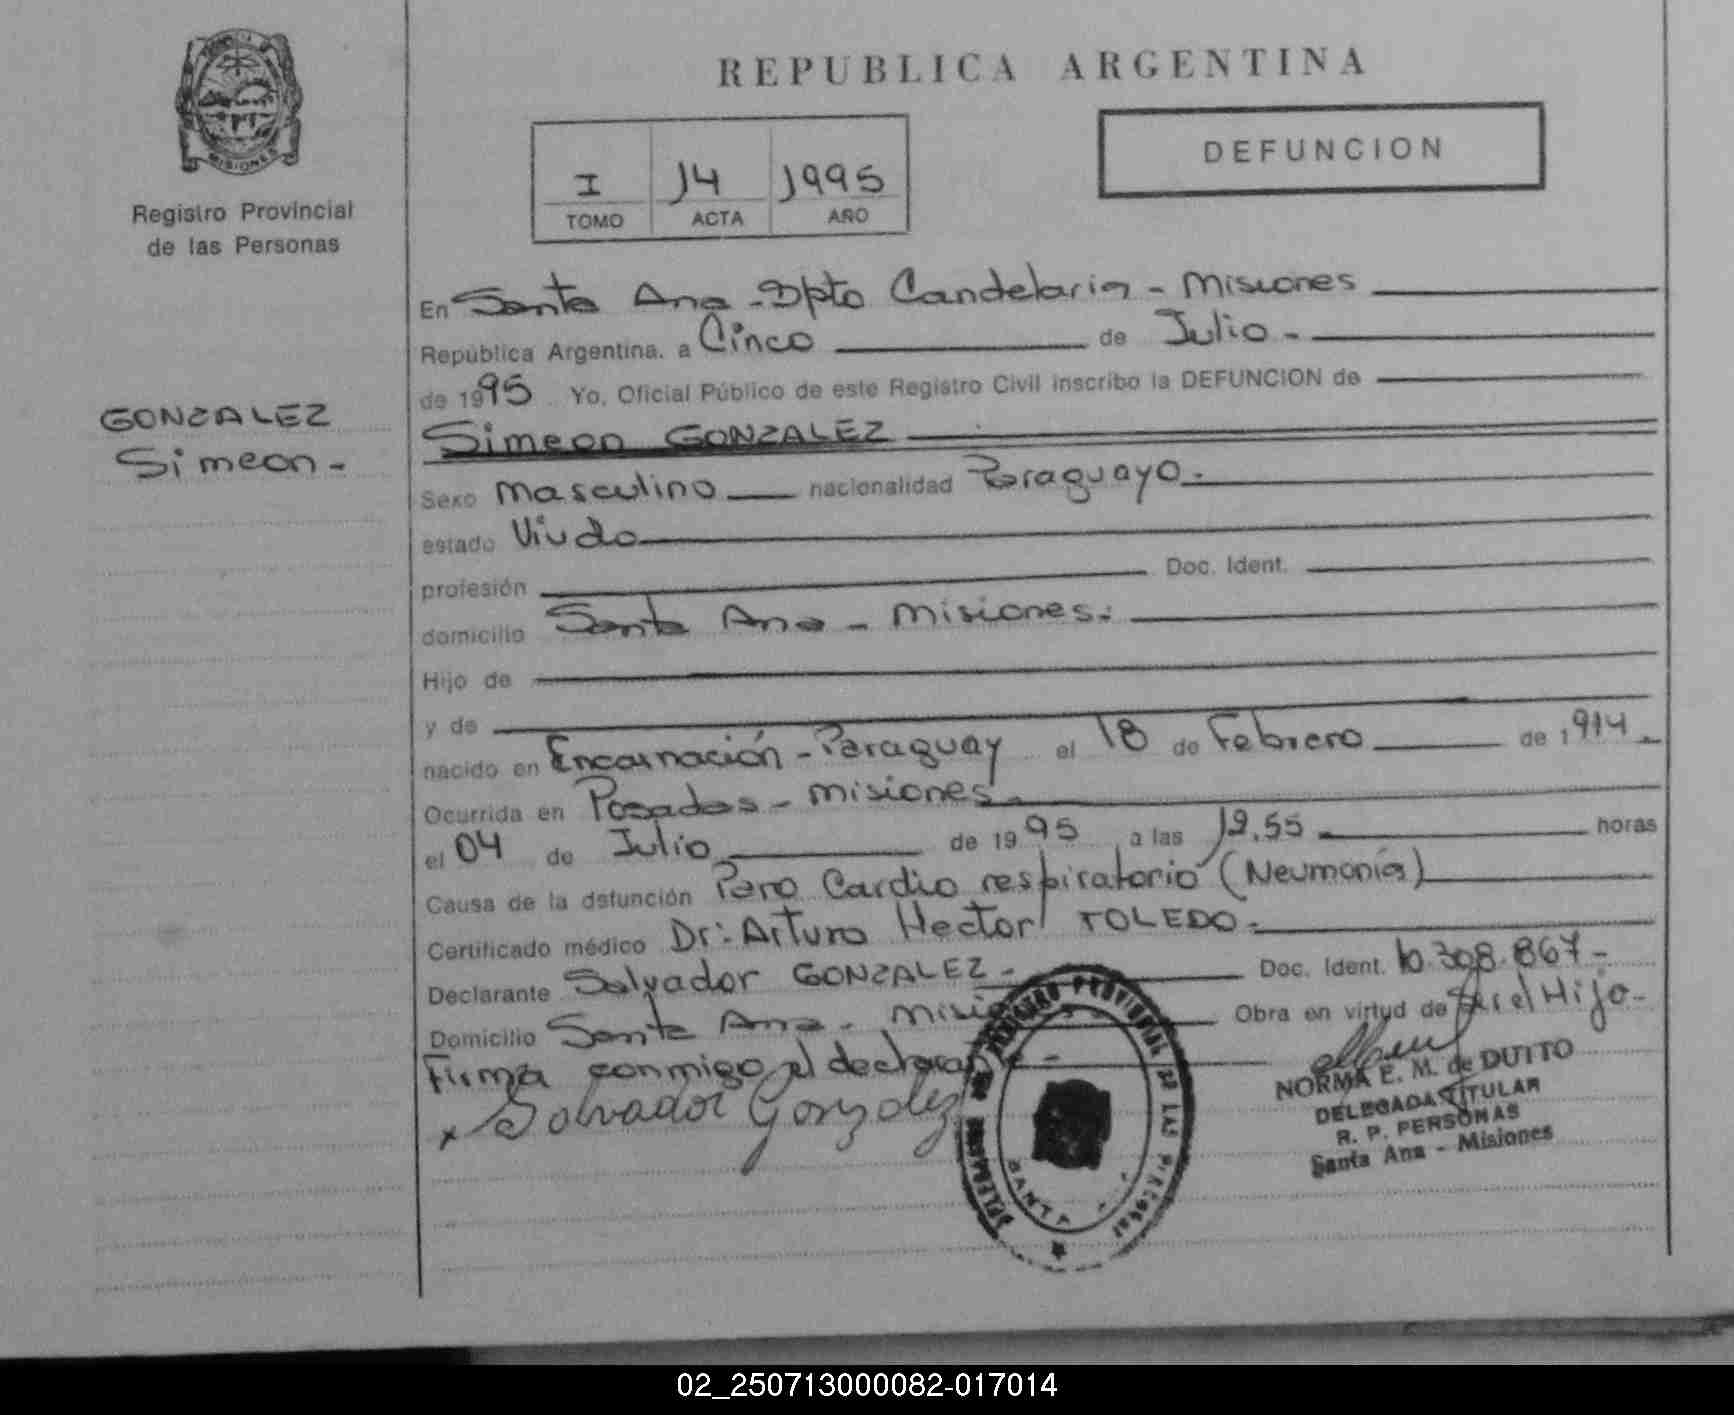 REPUBLICA ARGENTINA
MISIONES
Registro Provincial
de las Personas
I 14 1995
TOMO ACTA AÑO
DEFUNCION
GONZALEZ
Simeon-
En Santa Ana - Dpto Candelaria - Misiones
República Argentina, a Cinco de Julio -
de 1995 Yo, Oficial Público de este Registro Civil inscribo la DEFUNCION de
Simeon GONZALEZ
Sexo Masculino nacionalidad Paraguayo.
estado Viudo
profesión Doc. Ident.
domicilio Santa Ana - Misiones.
Hijo de
y de
nacido en Encarnación - Paraguay el 18 de Febrero de 1914.
Ocurrida en Posadas - Misiones.
el 04 de Julio de 1995 a las 12.55 horas
Causa de la defunción Paro Cardio respiratorio (Neumonía)
Certificado médico Dr: Arturo Hector TOLEDO.
Declarante Salvador GONZALEZ - Doc. Ident. 10.308.867-
Domicilio Santa Ana - Obra en virtud de Ser el Hijo-
Firma conmigo el
x Salvador Gonzalez
REGISTRO PROVINCIAL DE LAS PERSONAS
SANTA
NORMA E. M. de DUTTO
DELEGADA TITULAR
R. P. PERSONAS
Santa Ana - Misiones
02_250713000082-017014